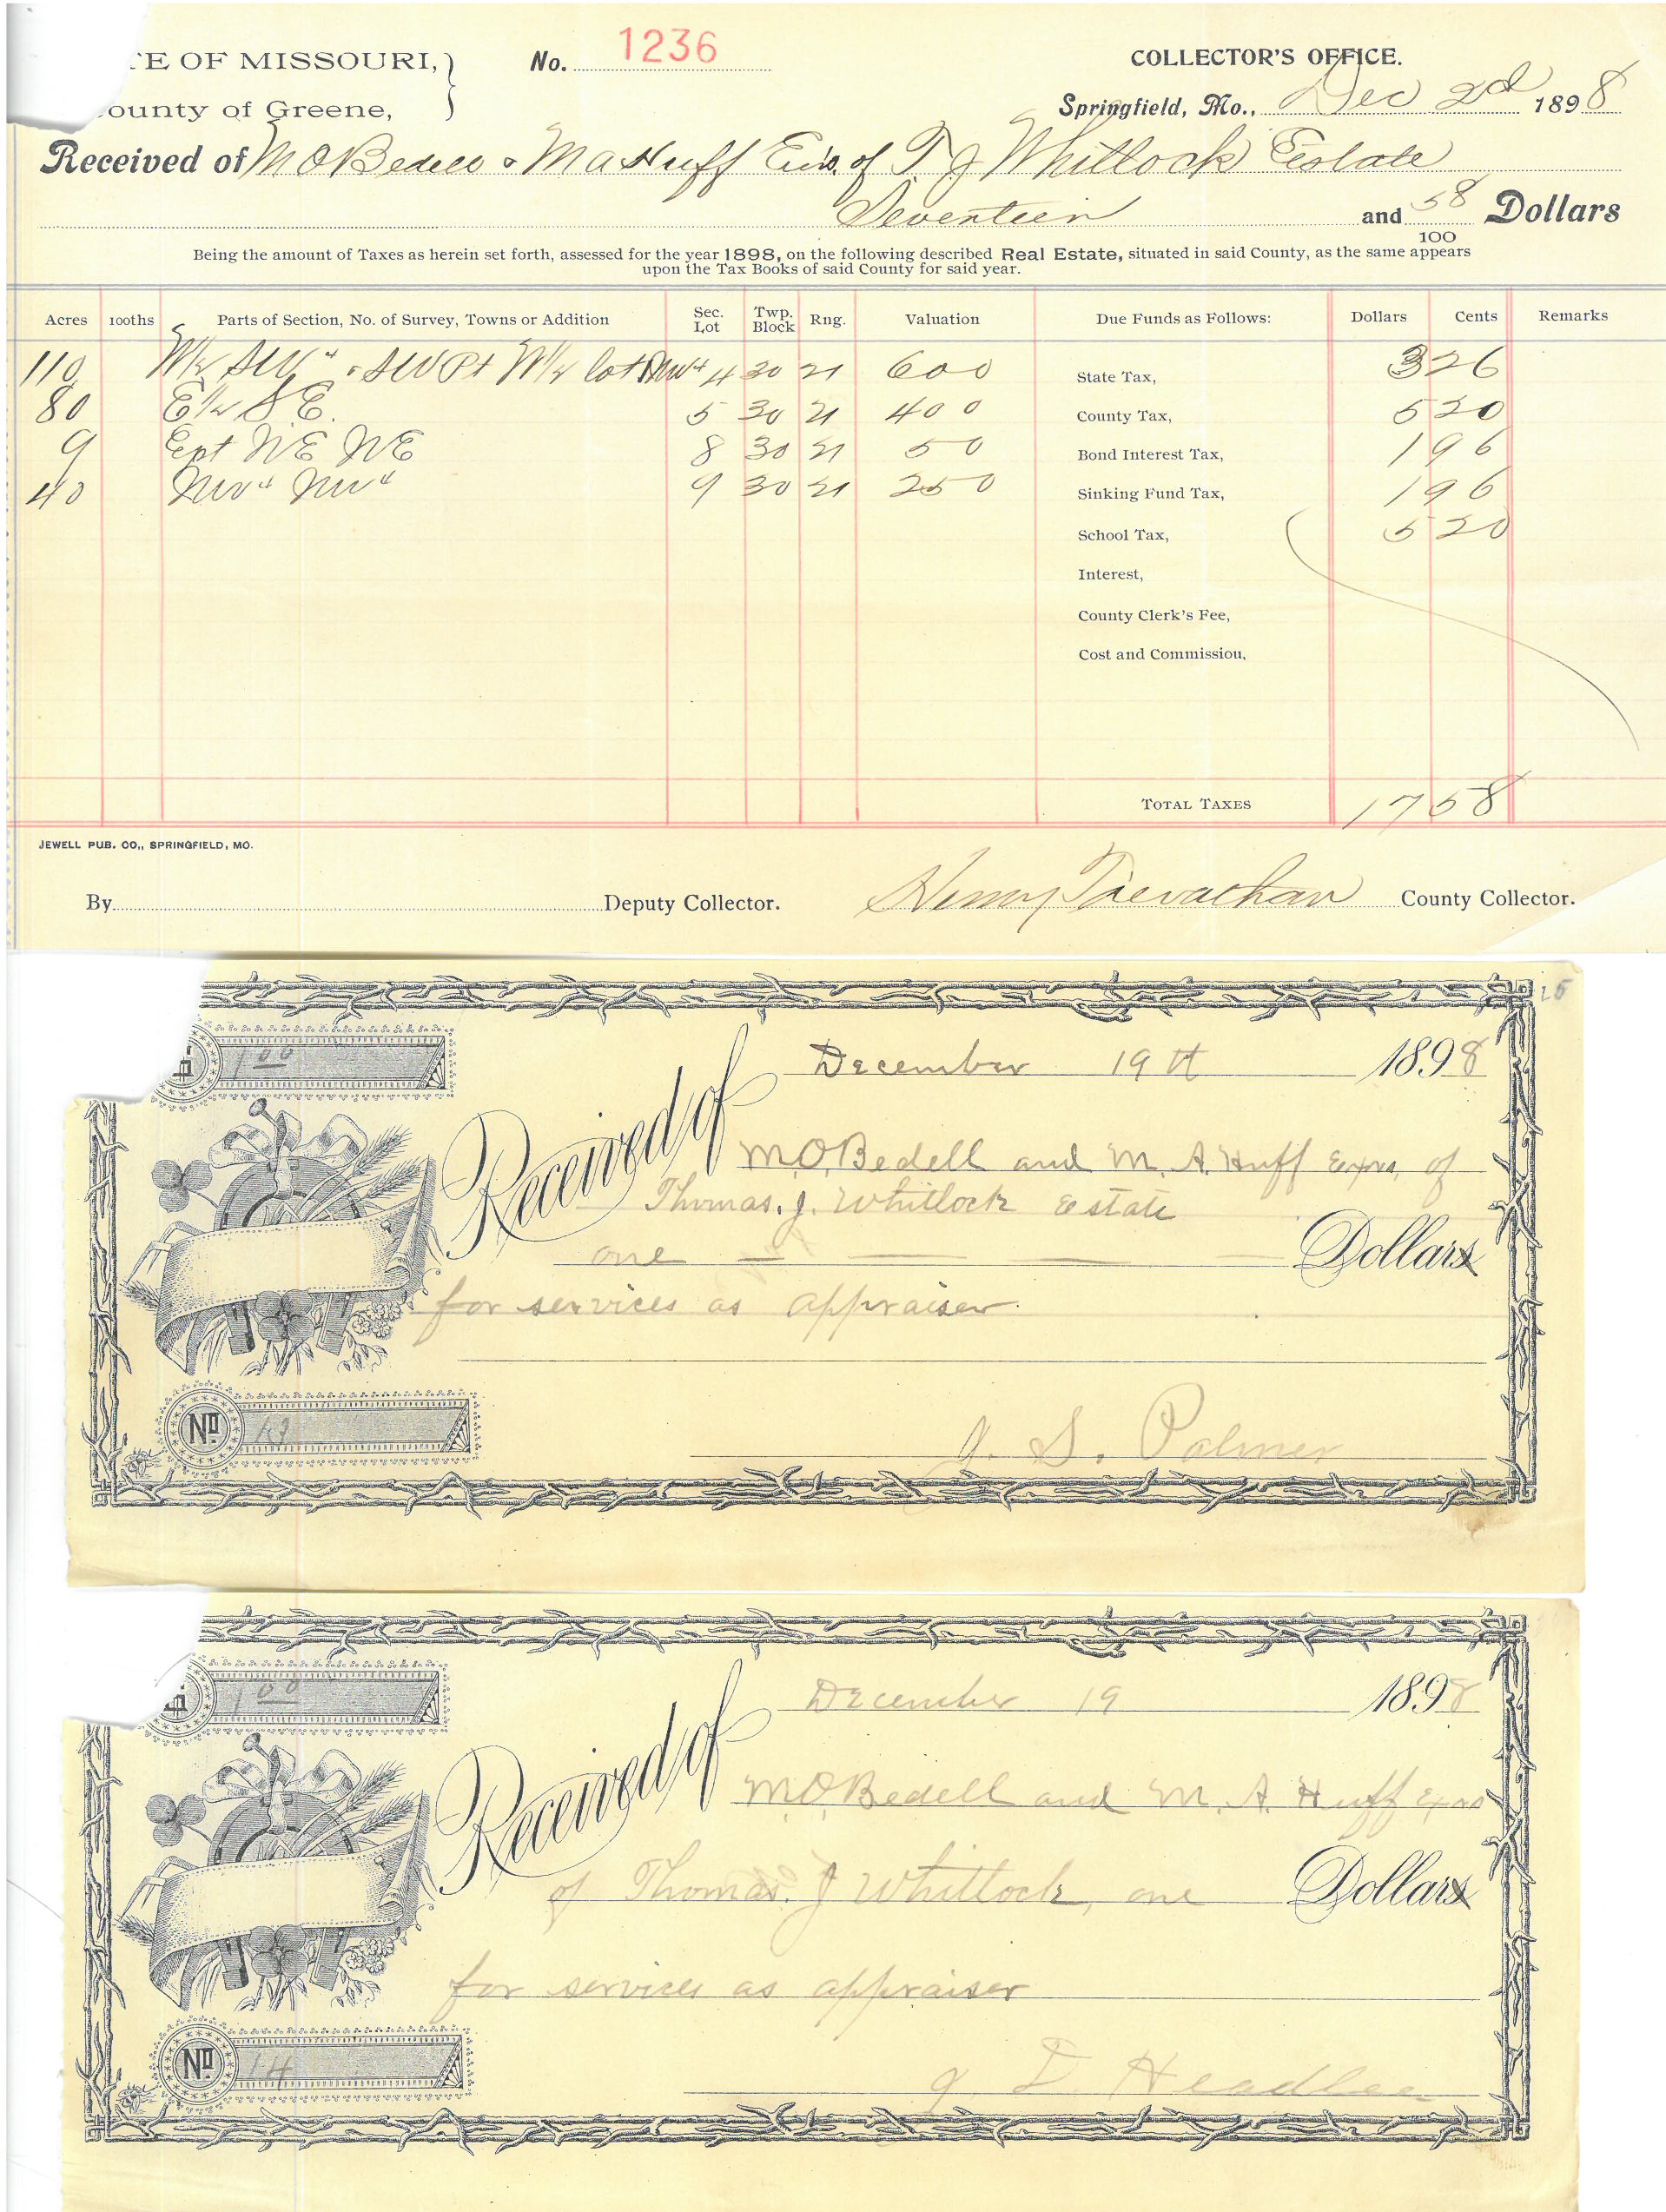 TE OF MISSOURI, } No. 1236 COLLECTOR'S OFFICE.
ounty of Greene, Springfield, Mo., Dec 2nd 1898
Received of M O Bedell & M A Huff Exrs. of T. J Whitlock Estate
Seventeen and 58/100 Dollars
Being the amount of Taxes as herein set forth, assessed for the year 1898, on the following described Real Estate, situated in said County, as the same appears
upon the Tax Books of said County for said year.
Acres 100ths Parts of Section, No. of Survey, Towns or Addition Sec. Lot Twp. Block Rng. Valuation Due Funds as Follows: Dollars Cents Remarks
110 W½ SW4 & SW Pt W½ lot NW4 4 30 21 600 State Tax, 3 26
80 E½ SE. 5 30 21 400 County Tax, 5 20
9 Ept NE NE 8 30 21 50 Bond Interest Tax, 1 96
40 NW4 NW4 9 30 21 250 Sinking Fund Tax, 1 96
School Tax, 5 20
Interest,
County Clerk's Fee,
Cost and Commission,
TOTAL TAXES 17 58
JEWELL PUB. CO., SPRINGFIELD, MO.
By Deputy Collector. Henry Trevathan County Collector.
25
1 00
December 19th 1898
Received of M.O. Bedell and M. A. Huff Exrs, of
Thomas. J. Whitlock Estate
one Dollars
for services as appraiser.
No. 13
J. S. Palmer
1 00
December 19 1898
Received of M.O. Bedell and M. A. Huff Exrs
of Thomas. J Whitlock, one Dollars
for services as appraiser
No. 14
J D Headlee